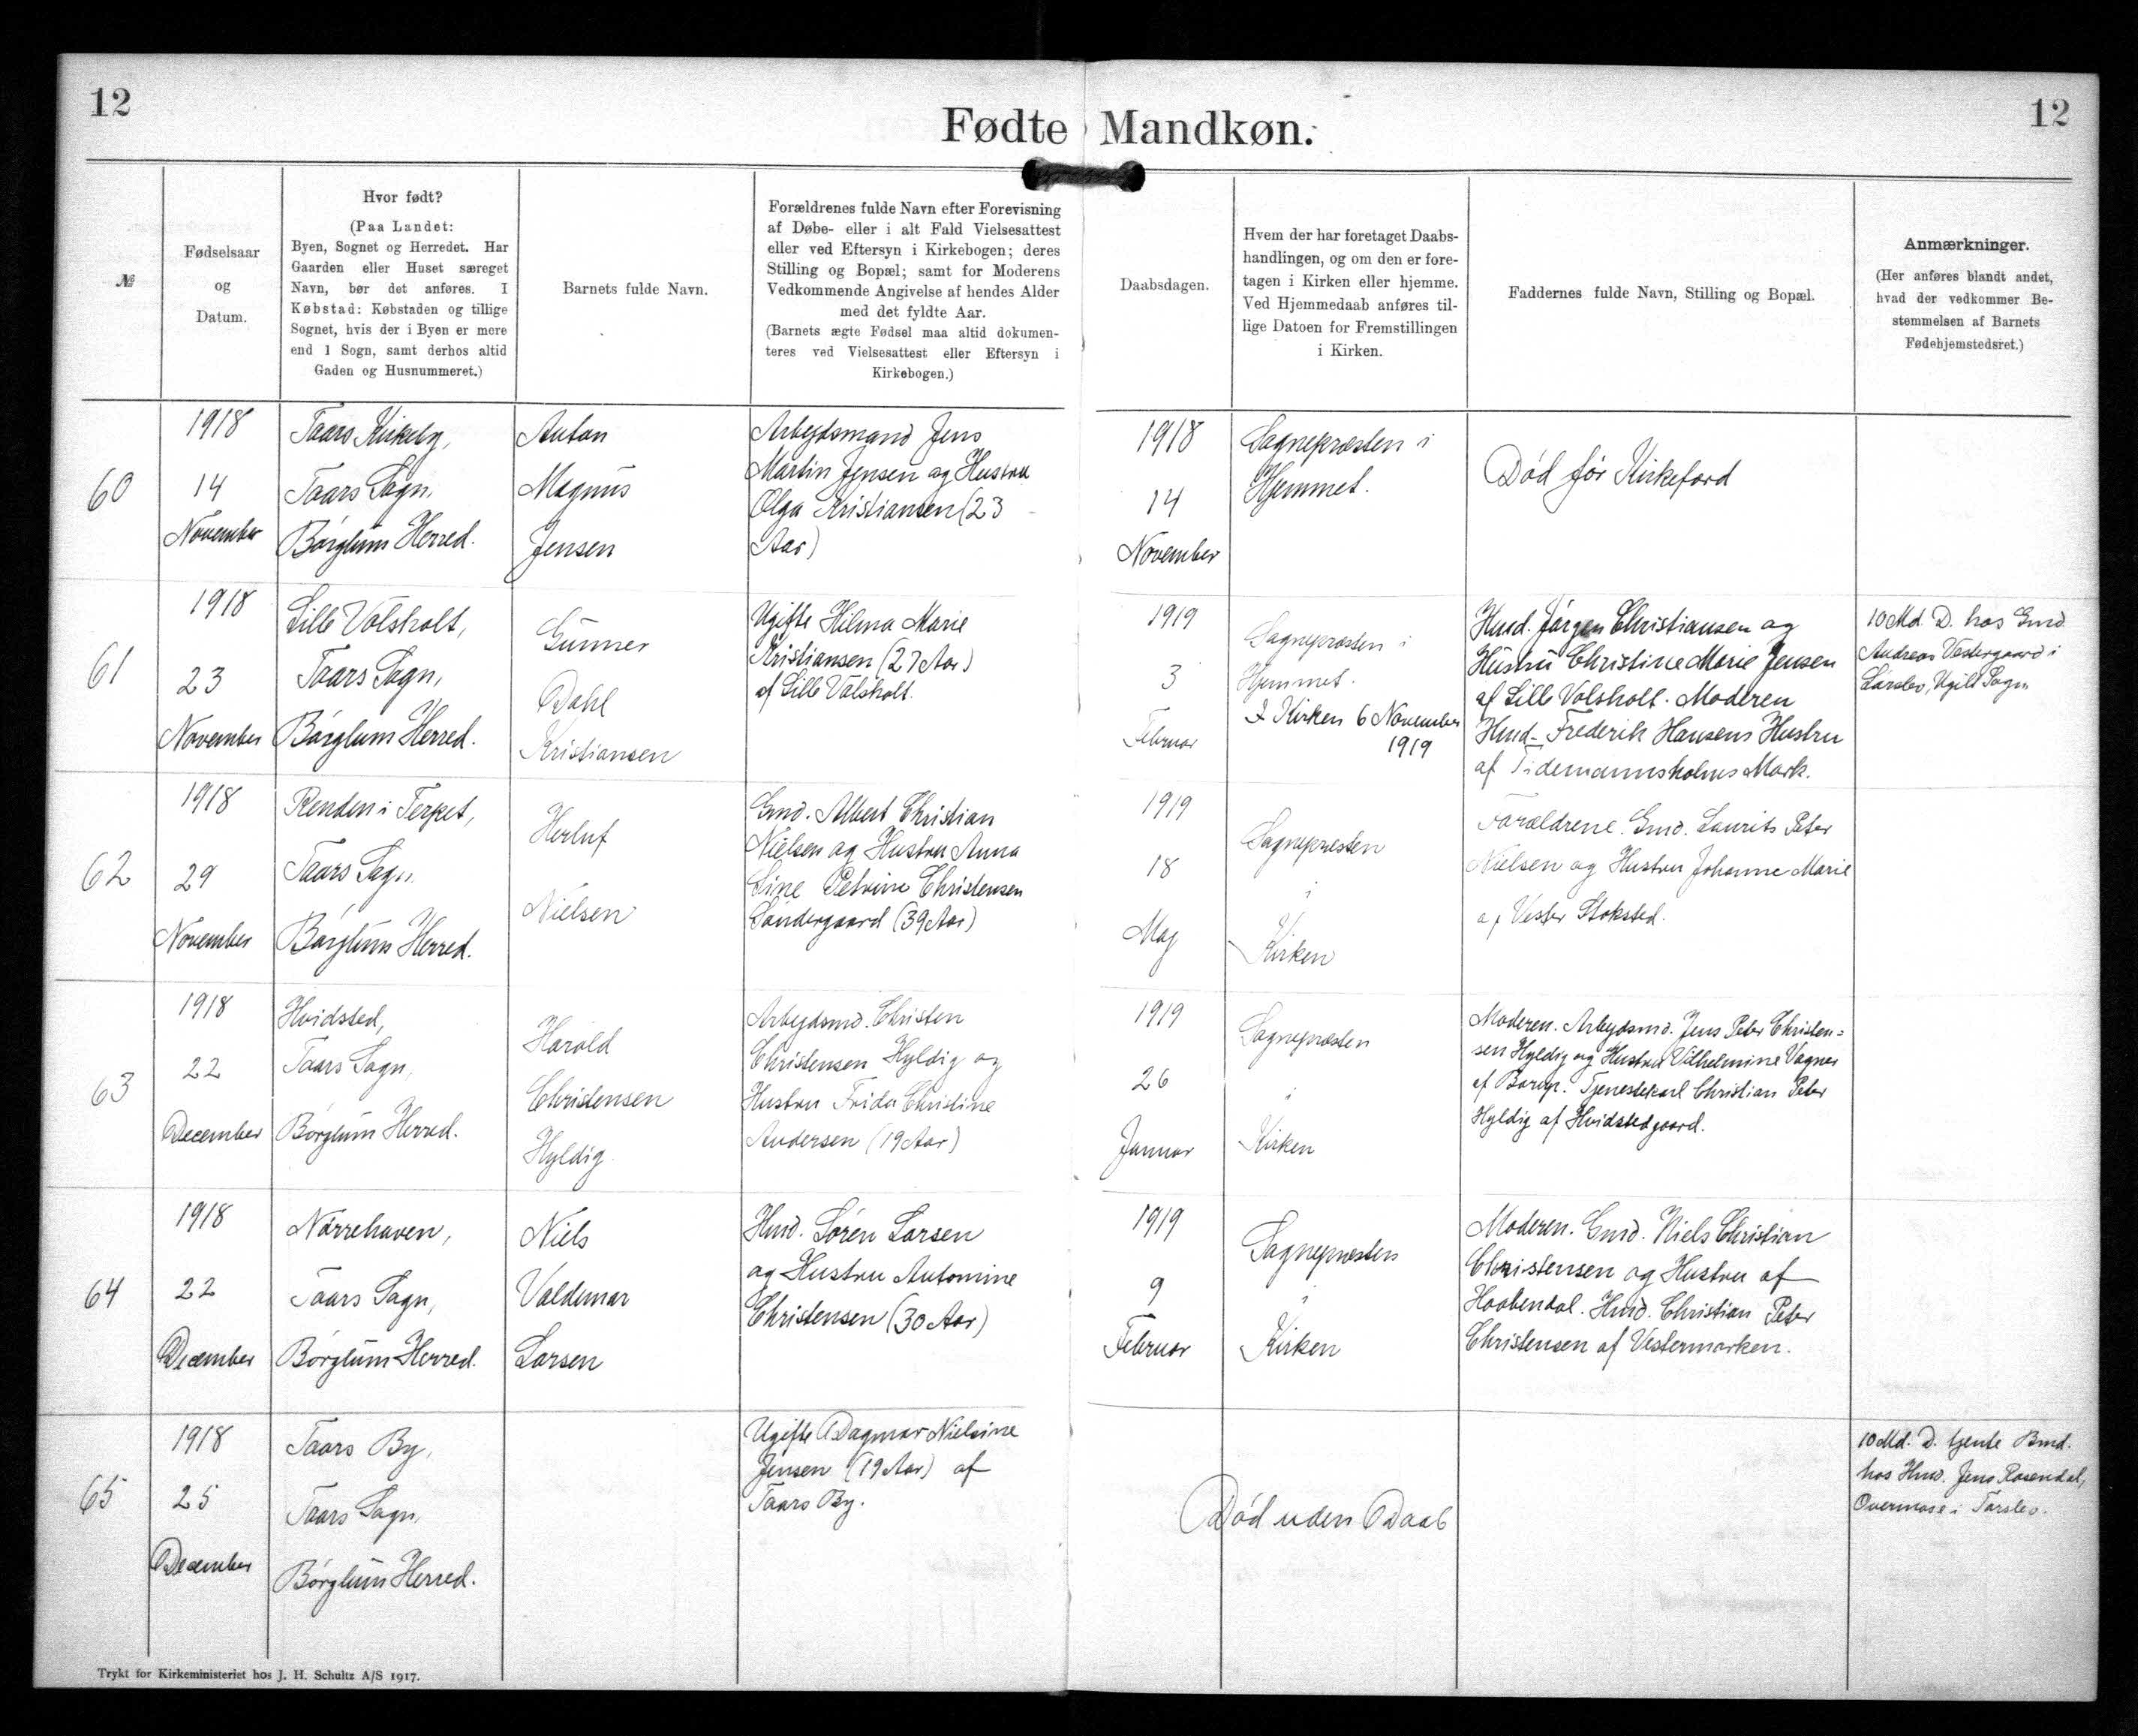 12
12
Fødte Mandkøn.
№
Fødselsaar
og
Datum.
Hvor født?
(Paa Landet:
Byen, Sognet og Herredet. Har
Gaarden eller Huset særeget
Navn, bør det anføres. I
Købstad: Købstaden og tillige
Sognet, hvis der i Byen er mere
end 1 Sogn, samt derhos altid
Gaden og Husnummeret.)
Barnets fulde Navn.
Forældrenes fulde Navn efter Forevisning
af Døbe- eller i alt Fald Vielsesattest
eller ved Eftersyn i Kirkebogen; deres
Stilling og Bopæl; samt for Moderens
Vedkommende Angivelse af hendes Alder
med det fyldte Aar.
(Barnets ægte Fødsel maa altid dokumen-
teres ved Vielsesattest eller Eftersyn i
Kirkebogen.)
Daabsdagen.
Hvem der har foretaget Daabs-
handlingen, og om den er fore-
tagen i Kirken eller hjemme.
Ved Hjemmedaab anføres til-
lige Datoen for Fremstillingen
i Kirken.
Faddernes fulde Navn, Stilling og Bopæl.
Anmærkninger.
(Her anføres blandt andet,
hvad der vedkommer Be-
stemmelsen af Barnets
Fødehjemstedsret.)
60
1918
14
November
Taars Kirkeby,
Taars Sogn,
Børglum Herred.
Anton
Magnus
Jensen
Arbejdsmand Jens
Martin Jensen og Hustru
Olga Kristiansen (23
Aar)
1918
14
November
Sognepræsten i
Hjemmet.
Død før Kirkefærd
61
1918
23
November
Lille Volsholt,
Taars Sogn,
Børglum Herred.
Gunner
Dahl
Kristiansen
Ugifte Hilma Marie
Kristiansen (27 Aar)
af Lille Volsholt.
1919
3
Februar
Sognepræsten i
Hjemmet.
I Kirken 6 November
1919
Husd. Jørgen Christiansen og
Hustru Christine Marie Jensen
af Lille Volsholt. Moderen
Husd. Frederik Hansens Hustru
af Tidemannsholms Mark.
10 Md. D. hos Gmd
Andreas Vestergaard i
Lørslev, Ugilt Sogn
62
1918
29
November
Renden i Terpet,
Taars Sogn.
Børglum Herred.
Herluf
Nielsen
Gmd. Albert Christian
Nielsen og Hustru Anna
Line Petrine Christensen
Søndergaard (39 Aar)
1919
18
Maj
Sognepræsten
i
Kirken
Forældrene. Gmd. Laurits Peter
Nielsen og Hustru Johanne Marie
af Vester Stoksted.
63
1918
22
December
Hvidsted,
Taars Sogn,
Børglum Herred.
Harald
Christensen
Hyldig
Arbejdsmd. Christen
Christensen Hyldig og
Hustru Frida Christine
Andersen (19 Aar)
1919
26
Januar
Sognepræsten
i
Kirken
Moderen. Arbejdsmd. Jens Peter Christen=
sen Hyldig og Hustru Vilhelmine Vagner
af Borup. Tjenestekarl Christian Peter
Hyldig af Hvidstedgaard.
64
1918
22
December
Nørrehaven,
Taars Sogn,
Børglum Herred.
Niels
Valdemar
Larsen
Hmd. Søren Larsen
og Hustru Antomine
Christensen (30 Aar)
1919
9
Februar
Sognepræsten
i
Kirken
Moderen. Gmd. Niels Christian
Christensen og Hustru af
Haabendal. Hmd. Christian Peter
Christensen af Vestermarken.
65
1918
25
December
Taars By,
Taars Sogn,
Børglum Herred.
Ugifte Dagmar Nielsine
Jensen (19 Aar) af
Taars By.
Død uden Daab
10 Md. D. tjente Bmd.
hos Hmd. Jens Rosendal,
Overmose i Tørslev.
Trykt for Kirkeministeriet hos J. H. Schultz A/S 1917.